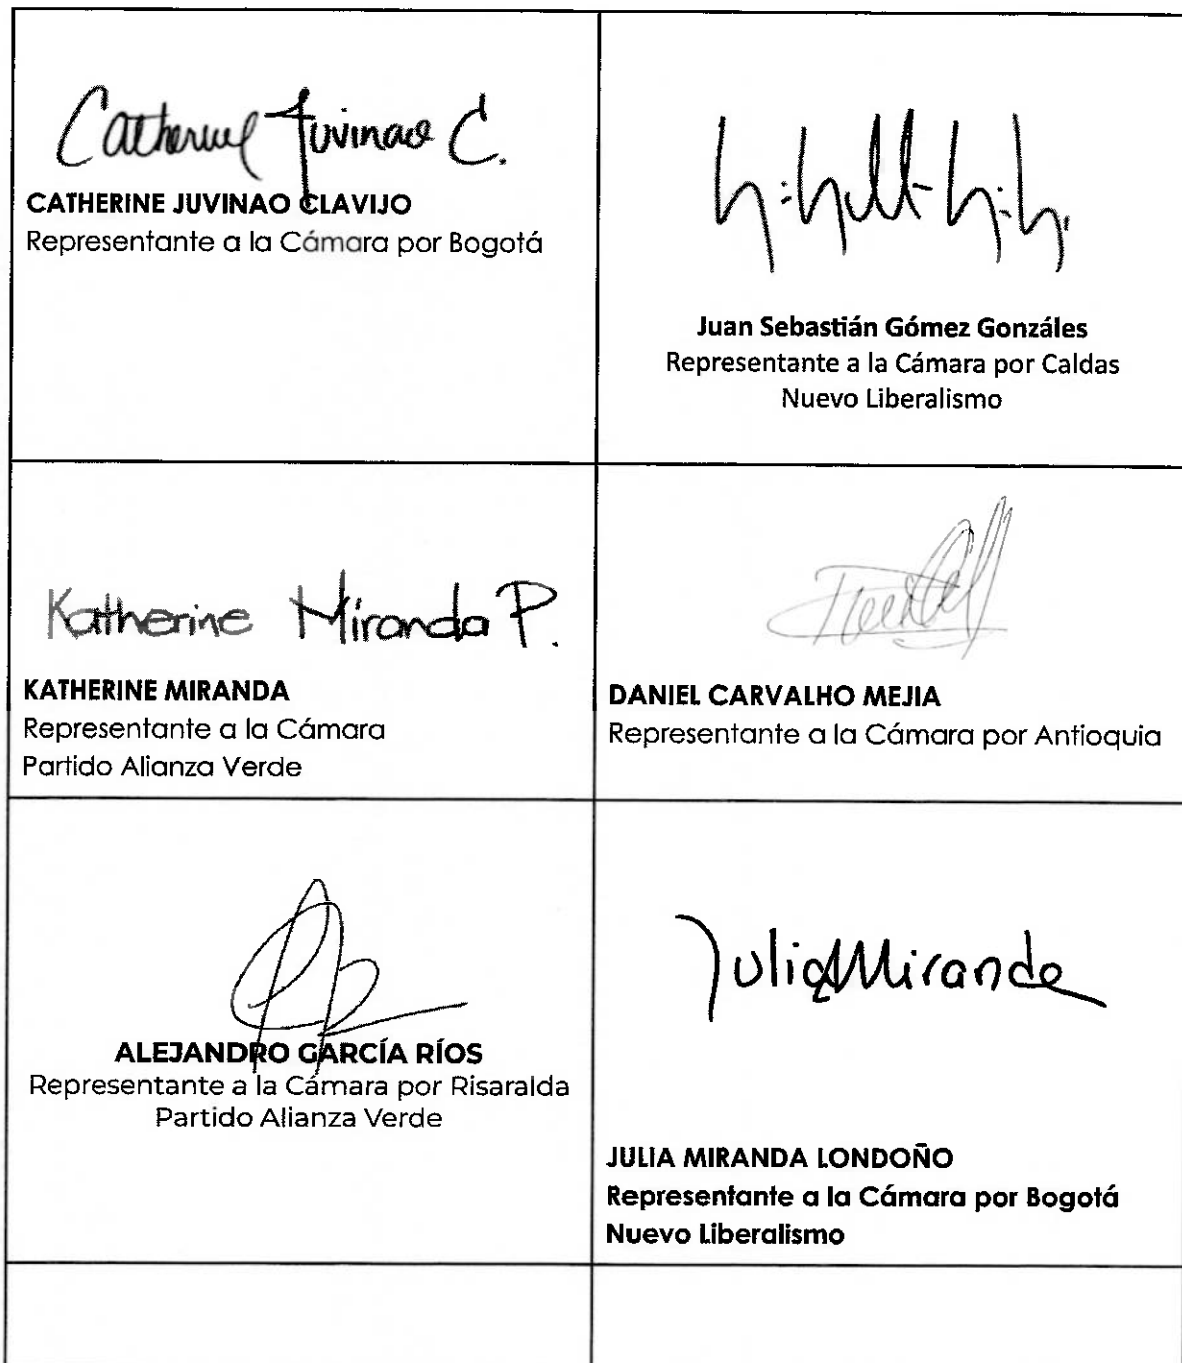 Catherine Juvinao C.
CATHERINE JUVINAO CLAVIJO
Representante a la Cámara por Bogotá
Juan Sebastián Gómez Gonzáles
Representante a la Cámara por Caldas
Nuevo Liberalismo
Katherine Miranda P.
KATHERINE MIRANDA
Representante a la Cámara
Partido Alianza Verde
DANIEL CARVALHO MEJIA
Representante a la Cámara por Antioquia
ALEJANDRO GARCÍA RÍOS
Representante a la Cámara por Risaralda
Partido Alianza Verde
Julia Miranda
JULIA MIRANDA LONDOÑO
Representante a la Cámara por Bogotá
Nuevo Liberalismo